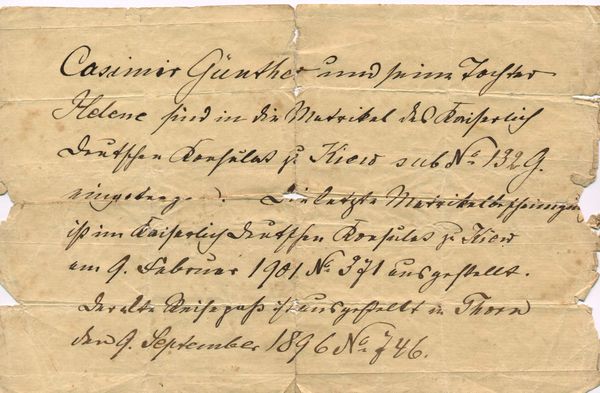 Casimir Günther und seine Tochter
Helene sind in die Matrikel des Kaiserlich
Deutschen Konsulats zu Kiew sub № 132 G.
eingetragen. Die letzte Matrikelbescheinigung
ist im Kaiserlich Deutschen Konsulat zu Kiew
am 9. Februar 1901 № 371 ausgestellt.
Der alte Reisepaß ist ausgestellt in Thorn
den 9. September 1896 № 746.